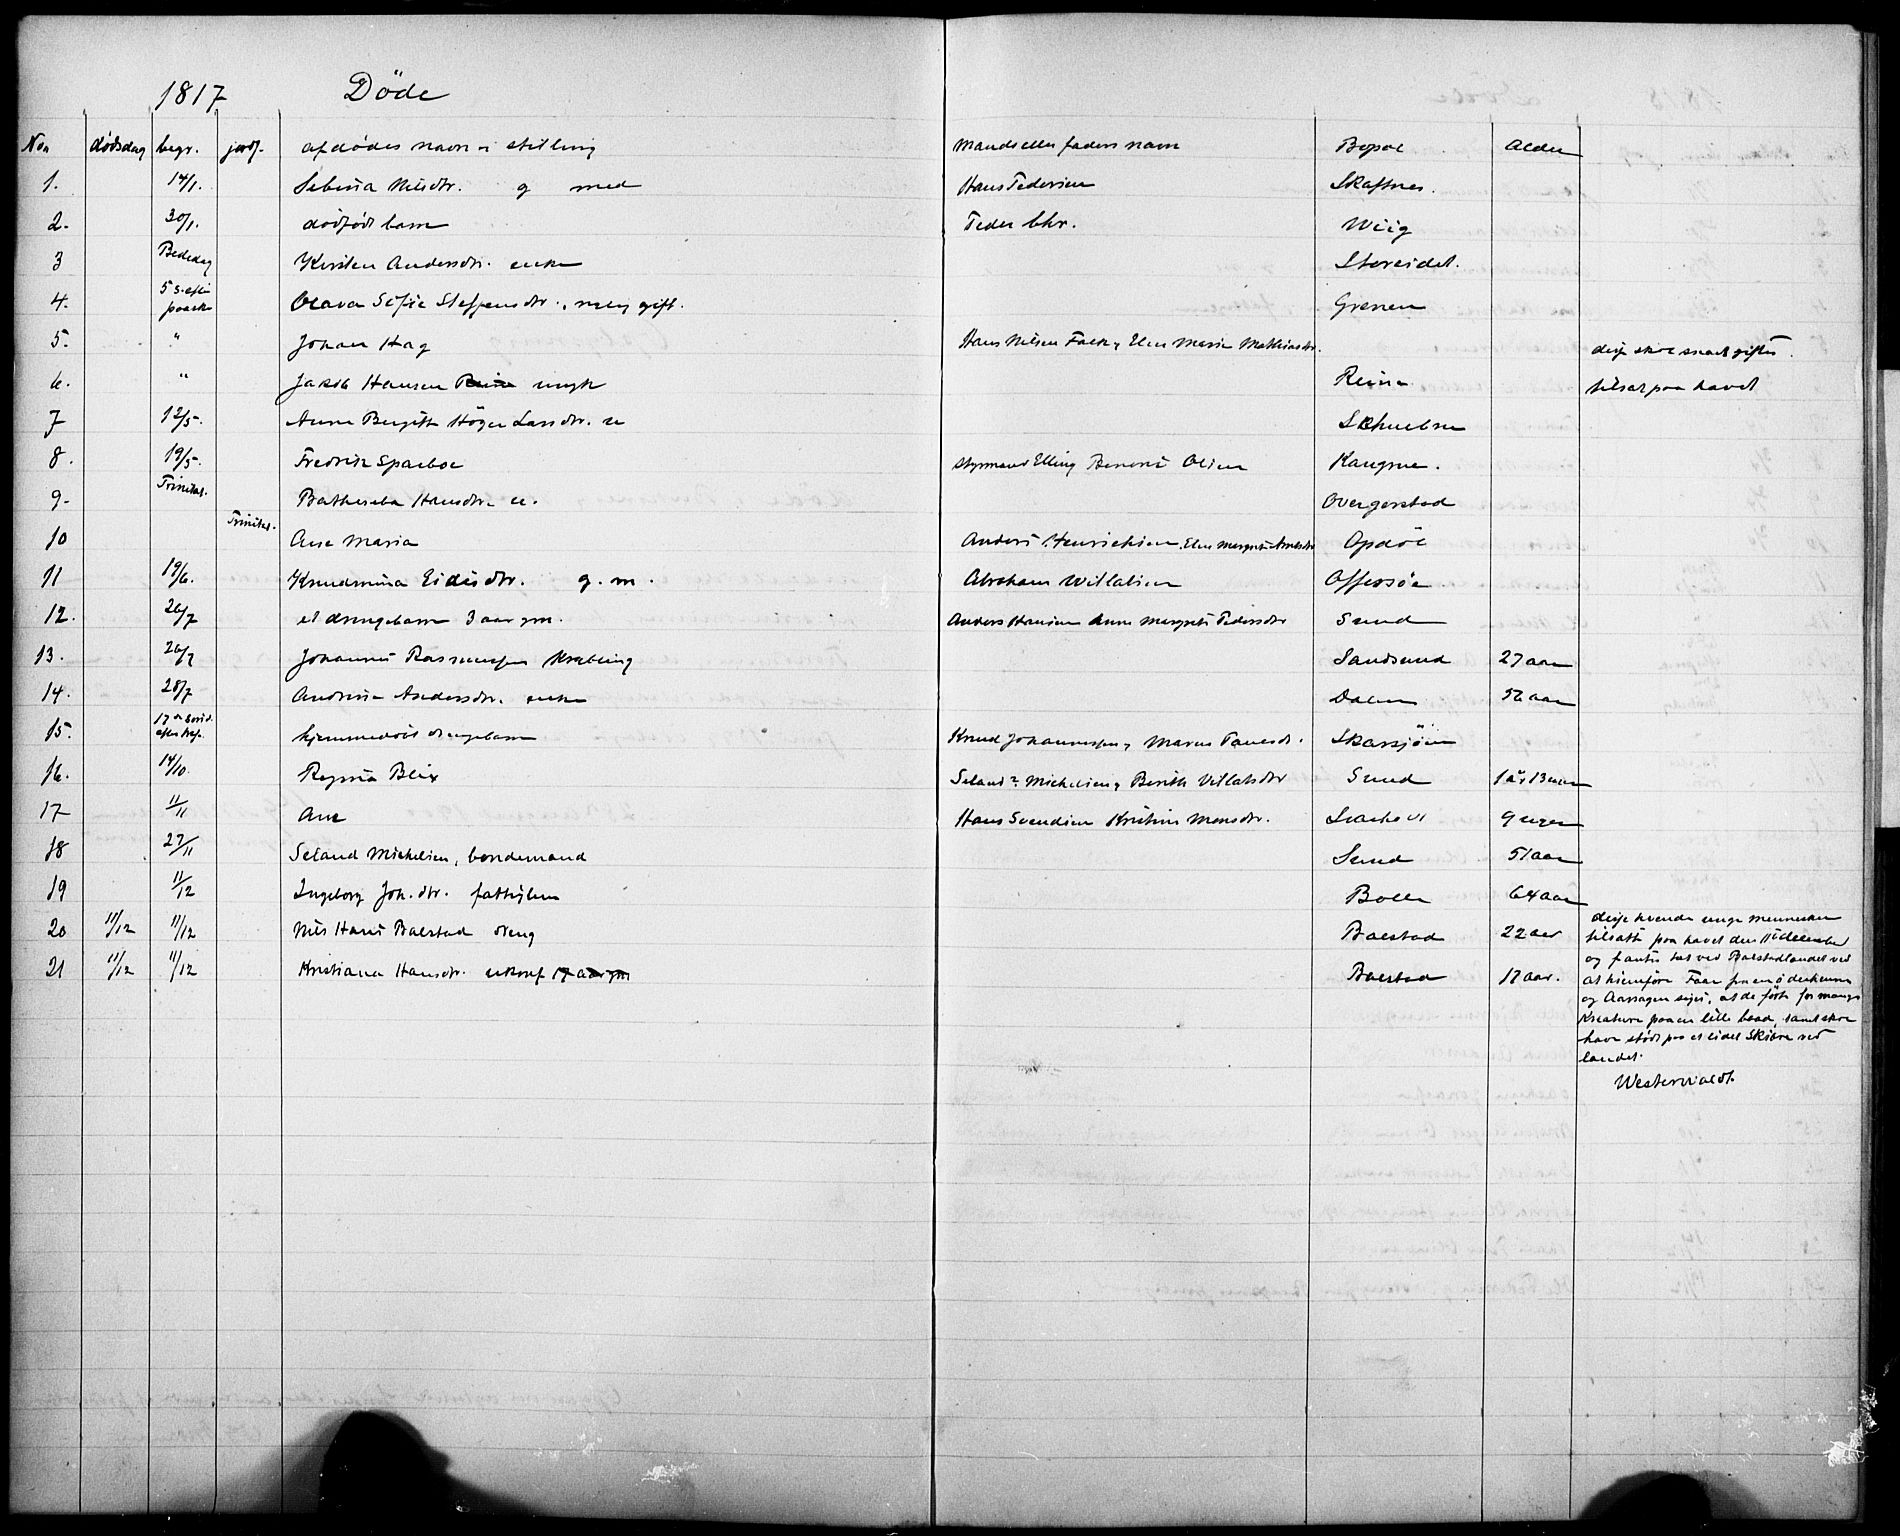 1817 Döde
No dødsdag begr. jordf. afdødes navn og stilling Mands eller faders navn Bopæl Alder
1. 14/1. Sebina Nilsdtr. g med Hans Pedersen Skaftnes.
2. 30/1. dödfødt barn Peder Chr. Wiig
3 Bededag Kirsten Andersdtr. enke Storeidet.
4. 5 s. efter paaske Olava Sofie Steffensdtr., nylig gift. Grenen
5. " Johan Hag Hans Nilsen Falch Elen Maria Mathiasdtr. disse skal snart giftes.
6. " Jakob Hansen ungk Reine tilsat paa havet
7 12/5. Anne Birgitte Höyer Larsdtr. e
8. 19/5. Fredrik Sparboe styrmand Elling Benoni Olsen Kangerne.
9. Trinitat. Bathseba Hansdtr. e. Overgerstad
10 Trinitat. Ane Maria Anders Henrichsen, Elen Margrete Arnesdtr Opdöl
11 19/6. Knudmina Eidisdtr. g. m. Abraham Willatsen Offersøe
12. 26/7 et drengebarn 3 aar gm. Anders Hansen Anne Margrete Pedersdtr Sund
13. 26/7 Johannes Rasmussen Sandsund 27 aar
14. 28/7 Andrea Andersdtr. enke Dalen 56 aar
15. 17de Sønd. efter hjemmedöbt drengebarn Knud Johannessen Maren Paulsdtr. Skarsjöen
16. 14/10. Regina Blix Seland? Michelsen Berith Villatsdtr Sund 1 år 13 uger
17 11/11 Ane Hans Svendsen Kristine Monsdtr. 9 uger
18 27/11 Seland Michelsen, bondemand Sund 51 aar
19 11/12 Ingeborg Joh. dtr. fattiglem Bolle 64 aar
20 11/12 11/12 Nils Hans Balstad dreng Balstad 22 aar
21 11/12 11/12 Kristiana Hansdtr. ukonf 17 aar gm Balstad 17 aar.
disse tvende unge mennesker
tilsatte paa havet den 11 december
og fantes tæt ved Balstadlandet ved
at hiemføre Faar fra en ö derhenne
og Aarsagen siges, at de førte for mange
Kreature paa en lille baad, samt skal
have stødt paa et lidet Skiær ved
landet.
Westerwaldt.